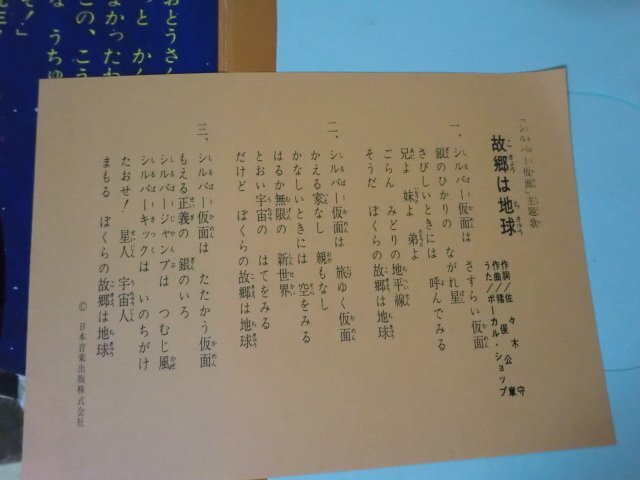 「シルバー仮面」主題歌
故郷は地球
作詞／佐々木守
作曲／猪俣公章
うた／ボーカル・ショップ
一、シルバー仮面は さすらい仮面
銀のひかりの ながれ星
さびしいときには 呼んでみる
兄よ 妹よ 弟よ
ごらん みどりの地平線
そうだ ぼくらの故郷は地球
二、シルバー仮面は 旅ゆく仮面
かえる家なし 親もなし
かなしいときには 空をみる
はるか無限の 新世界
とおい宇宙の はてをみる
だけど ぼくらの故郷は地球
三、シルバー仮面は たたかう仮面
もえる正義の 銀のいろ
シルバージャンプは つむじ風
シルバーキックは いのちがけ
たおせ！ 星人 宇宙人
まもる ぼくらの故郷は地球
© 日本音楽出版株式会社
おとうさん